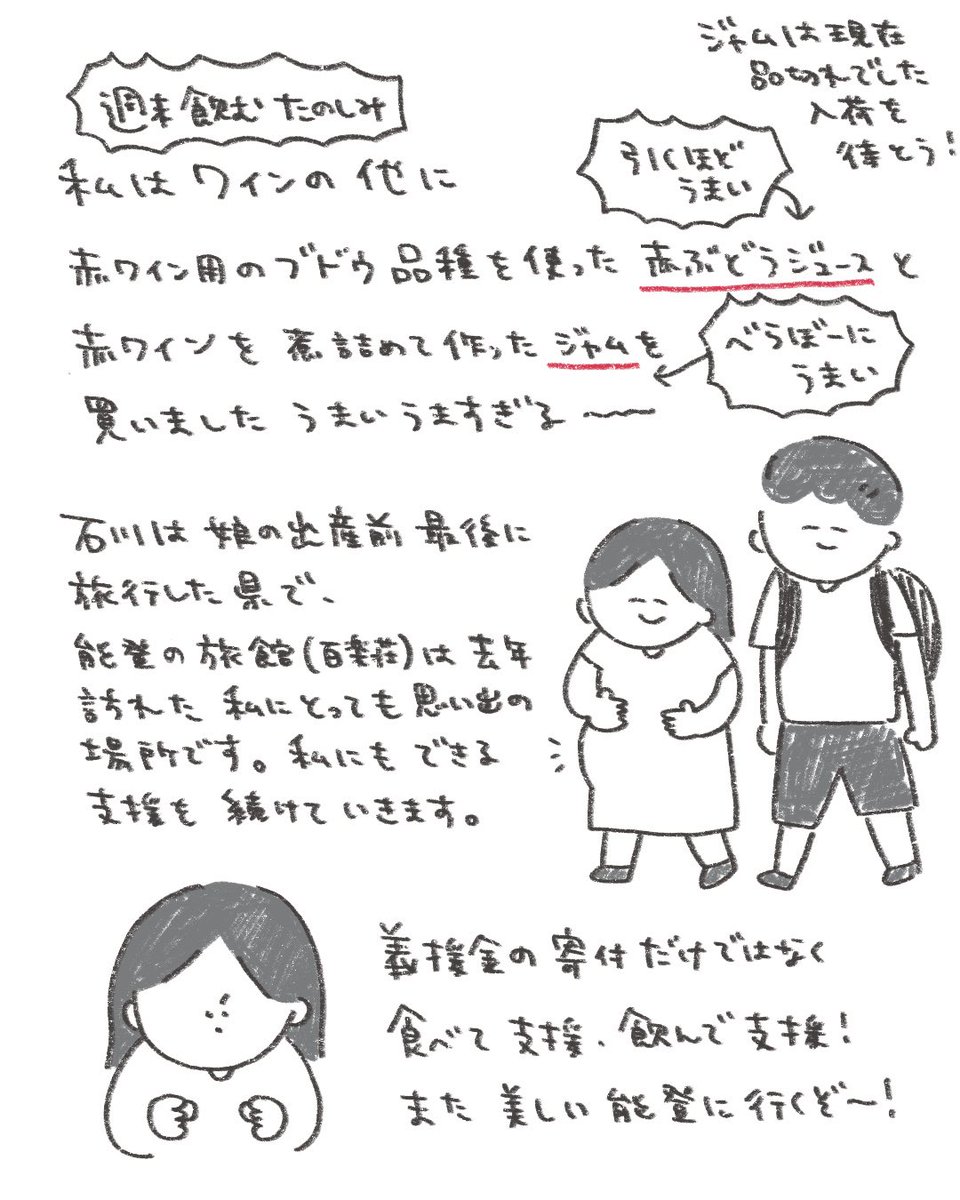 週末飲むたのしみ
私はワインの他に
ジャムは現在
品切れでした
入荷を
待とう!
引くほど
うまい
赤ワイン用のブドウ品種を使った赤ぶどうジュースと
赤ワインを煮詰めて作ったジャムを
べらぼーに
うまい
買いました うまいうますぎる〜
石川は娘の出産前最後に
旅行した県で、
能登の旅館(百楽荘)は去年
訪れた私にとっても思い出の
場所です。私にもできる
支援を続けていきます。
義援金の寄付だけではなく
食べて支援、飲んで支援!
また美しい能登に行くぞ〜!